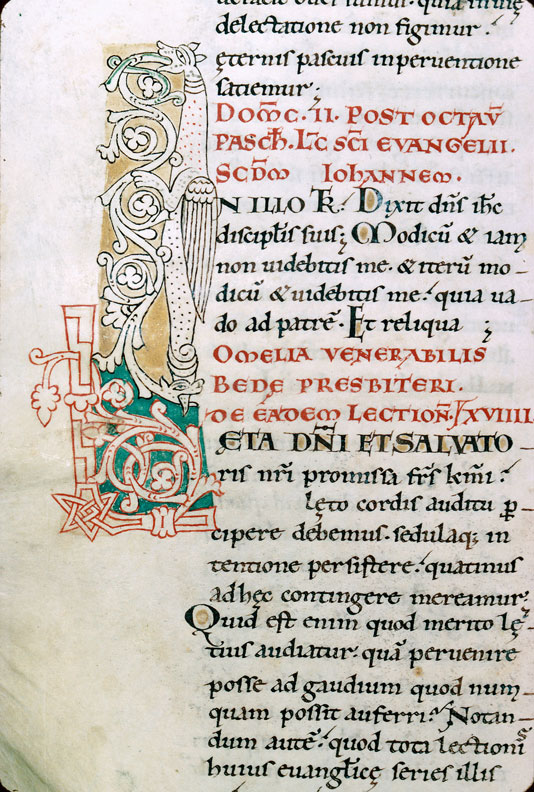 delectatione non figimur.
ęternis pascuis in perventione
satiemur;
DOM̄C. II. POST OCTAV̄
PASCH̄. LC̄ SC̄I EVANGELII.
SCD̄M IOHANNEM.
IN ILLO TR̄. Dixit dn̄s ih̄c
discipl̄is suis; Modicū & iam
non uidebitis me. & iterū mo-
dicū & uidebitis me. quia ua-
do ad patrē. Et reliqua;
OMELIA VENERABILIS
BEDE PRESBITERI.
DE EADEM LECTION̄. LXVIIII
LETA DN̄I ET SALVATO-
ris nr̄i promissa fr̄s km̄i.
lęto cordis auditu p̄-
cipere debemus. sedulaq; in
tentione persistere. quatinus
ad hęc contingere mereamur;
Quid est enim quod merito lę-
tius audiatur. quā peruenire
posse ad gaudium quod num-
quam possit auferri? Notan-
dum autē. quod tota lectionis
huius euangl̄icę series illis